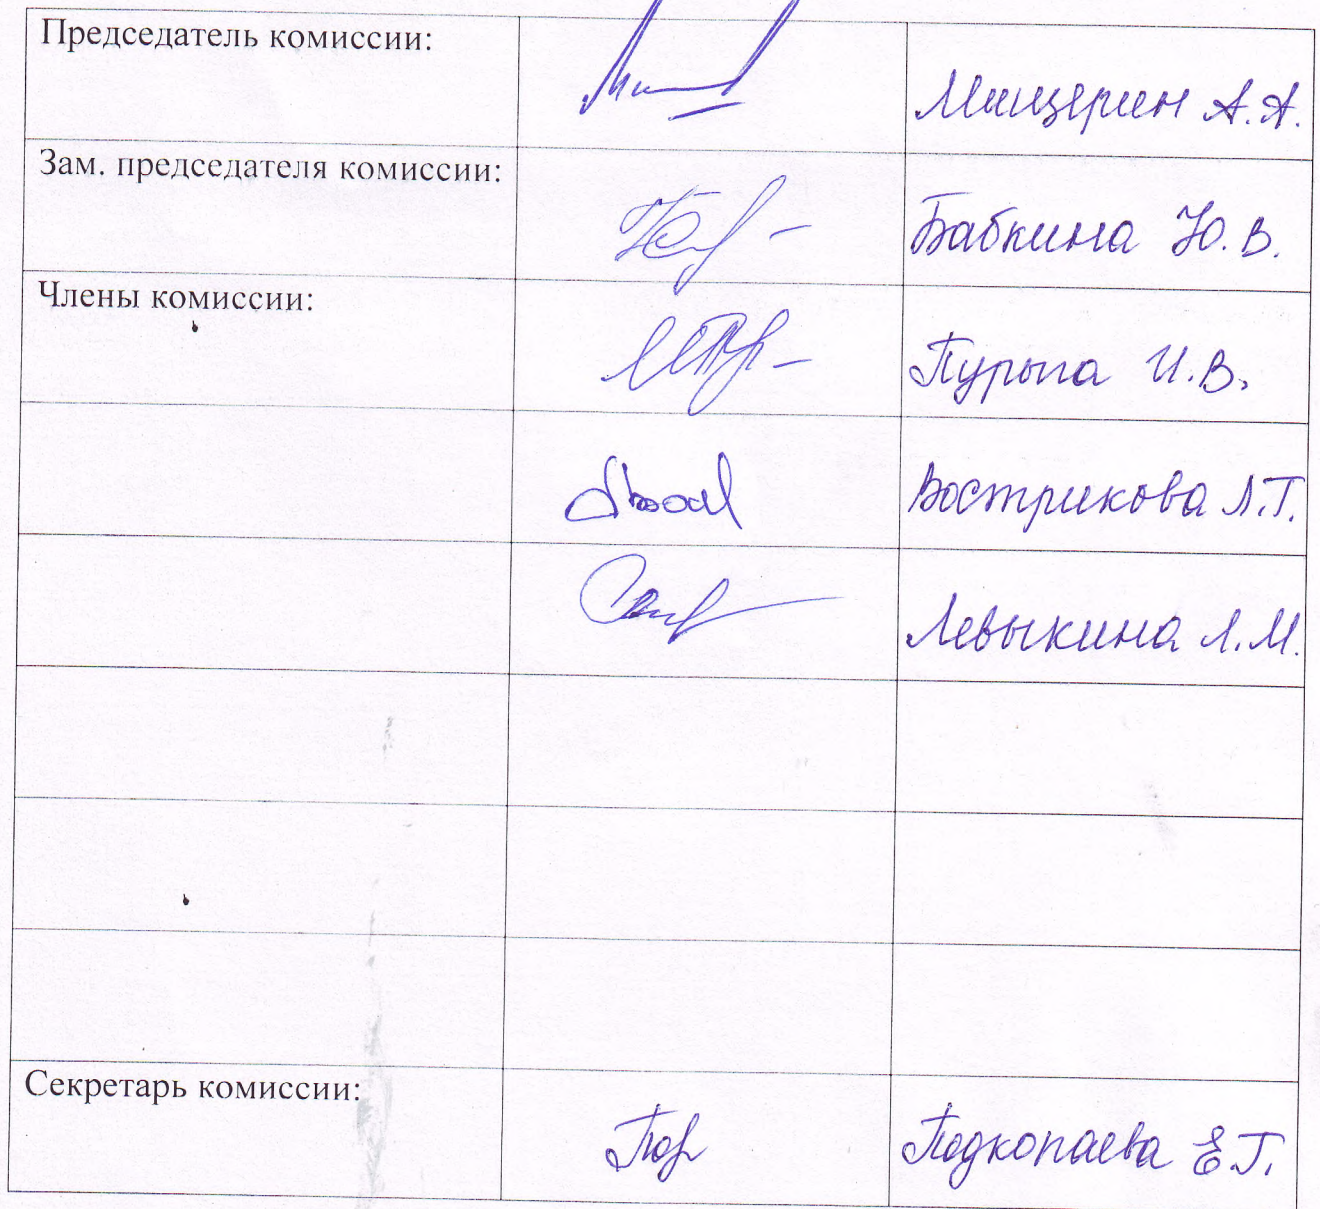 Председатель комиссии:
Мищерин А.А.
Зам. председателя комиссии:
Бабкина Ю.В.
Члены комиссии:
Пурыга И.В.
Вострикова Л.Г.
Левыкина Л.М.
Секретарь комиссии:
Подкопаева Е.Г.